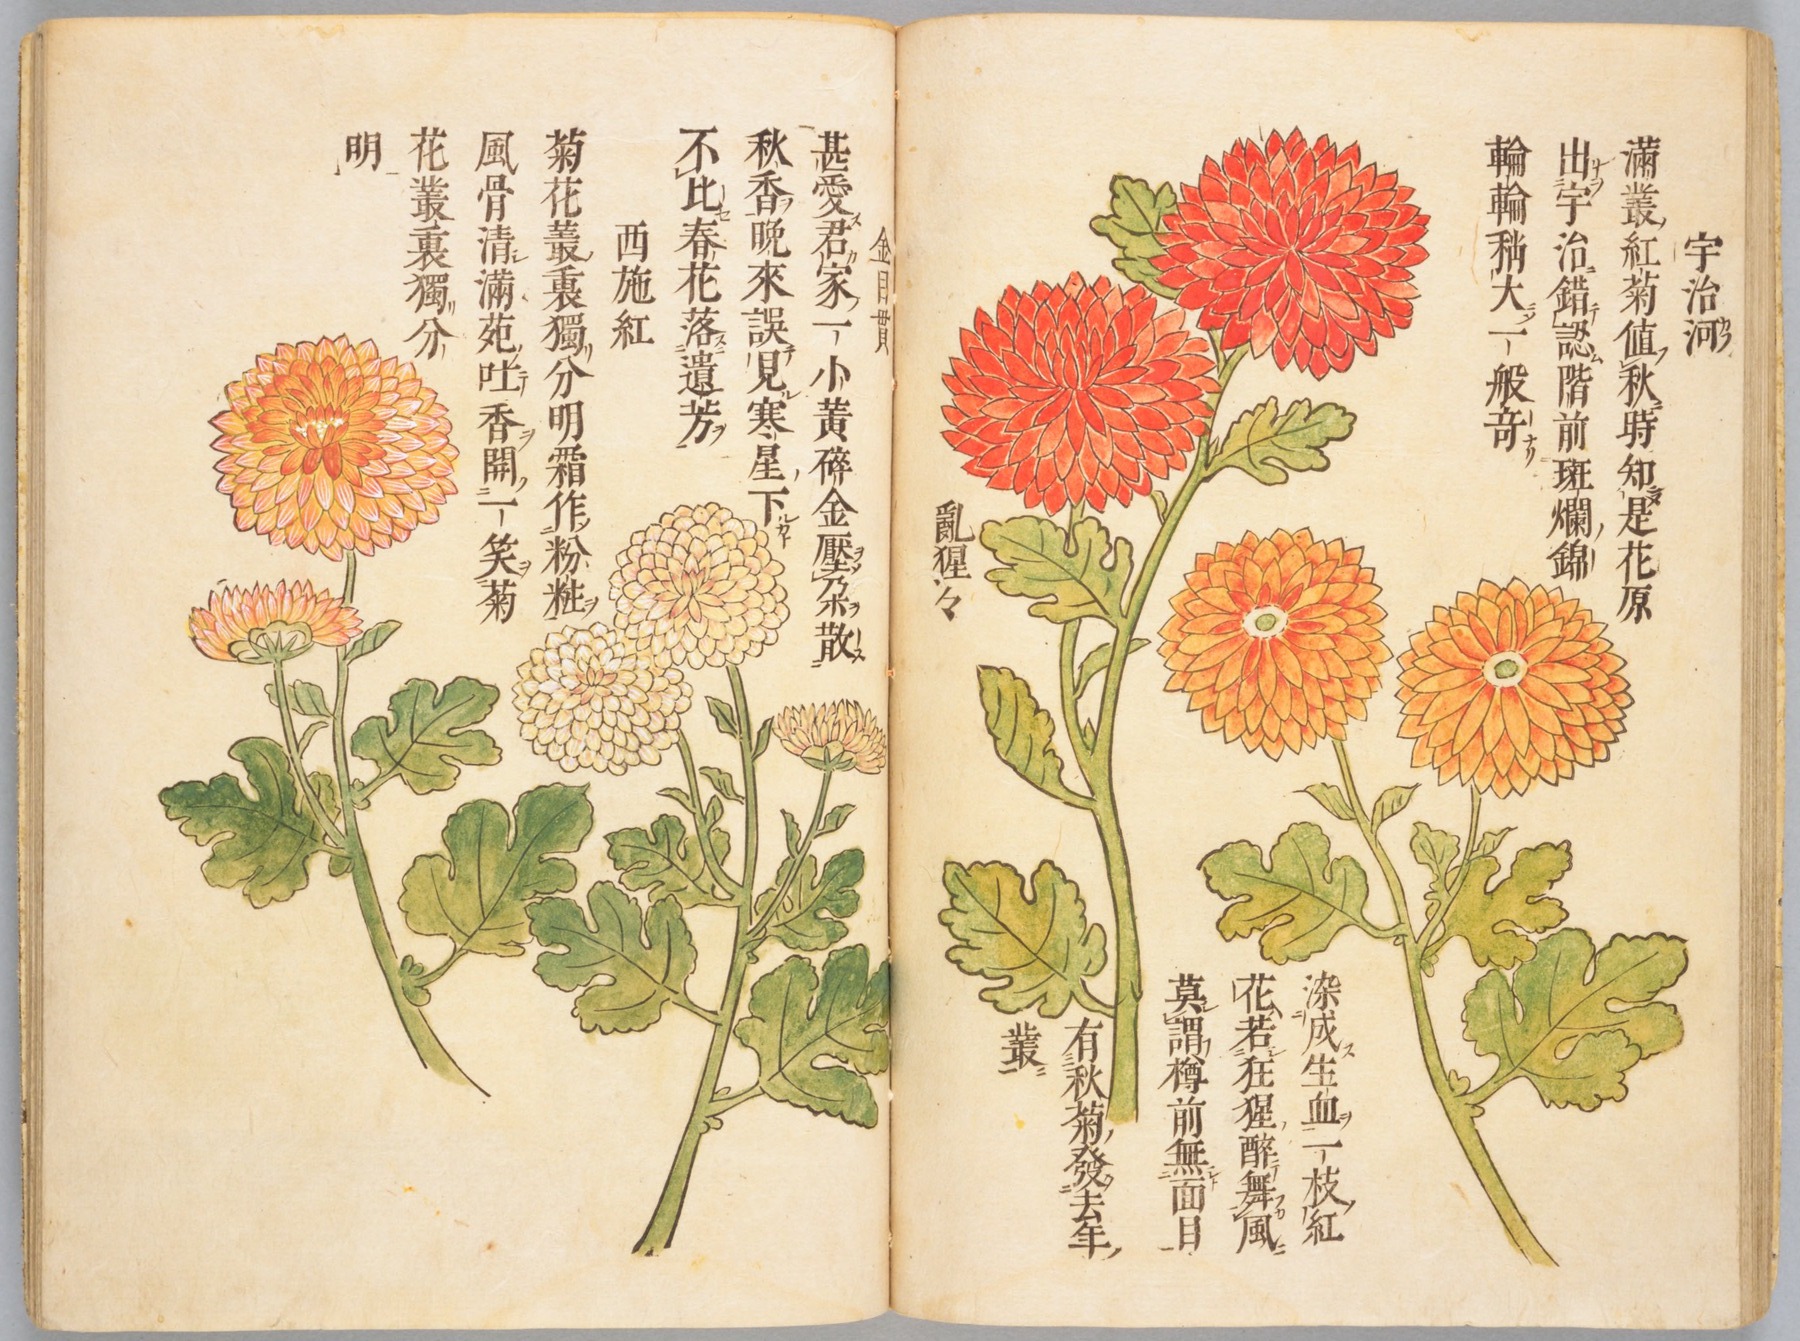 宇治河
滿叢紅菊値秋時知是花原
出宇治錯認階前斑爛錦
輪輪稍大一般竒
亂猩々
染成生血一枝紅
花若狂猩醉舞風
莫謂樽前無面目
有秋菊發去年
叢
金目貫
甚愛君家一小黃碎金壓朶散
秋香晩來誤見寒星下
不比春花落遺芳
西施紅
菊花叢裏獨分明霜作粉粧
風骨清滿苑吐香開一笑菊
花叢裏獨分
明